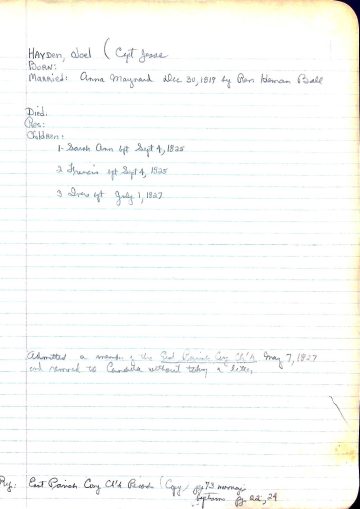 HAYDEN, Noel ( Capt Jesse
BORN:
MARRIED: Anna Maynard Dec 30, 1819 by Rev. Heman Ball
Died:
Res:
Children:
1- Sarah Ann bpt Sept 4, 1825
2 Francis bpt Sept 4, 1825
3 bpt July 1, 1827
Admitted a member of the East Parish Cong Ch'h May 7, 1827
and removed to Canada without taking a letter,
Ref: East Parish Cong Ch'd Records (Copy) pg 73 marriages
baptisms pg 22, 24